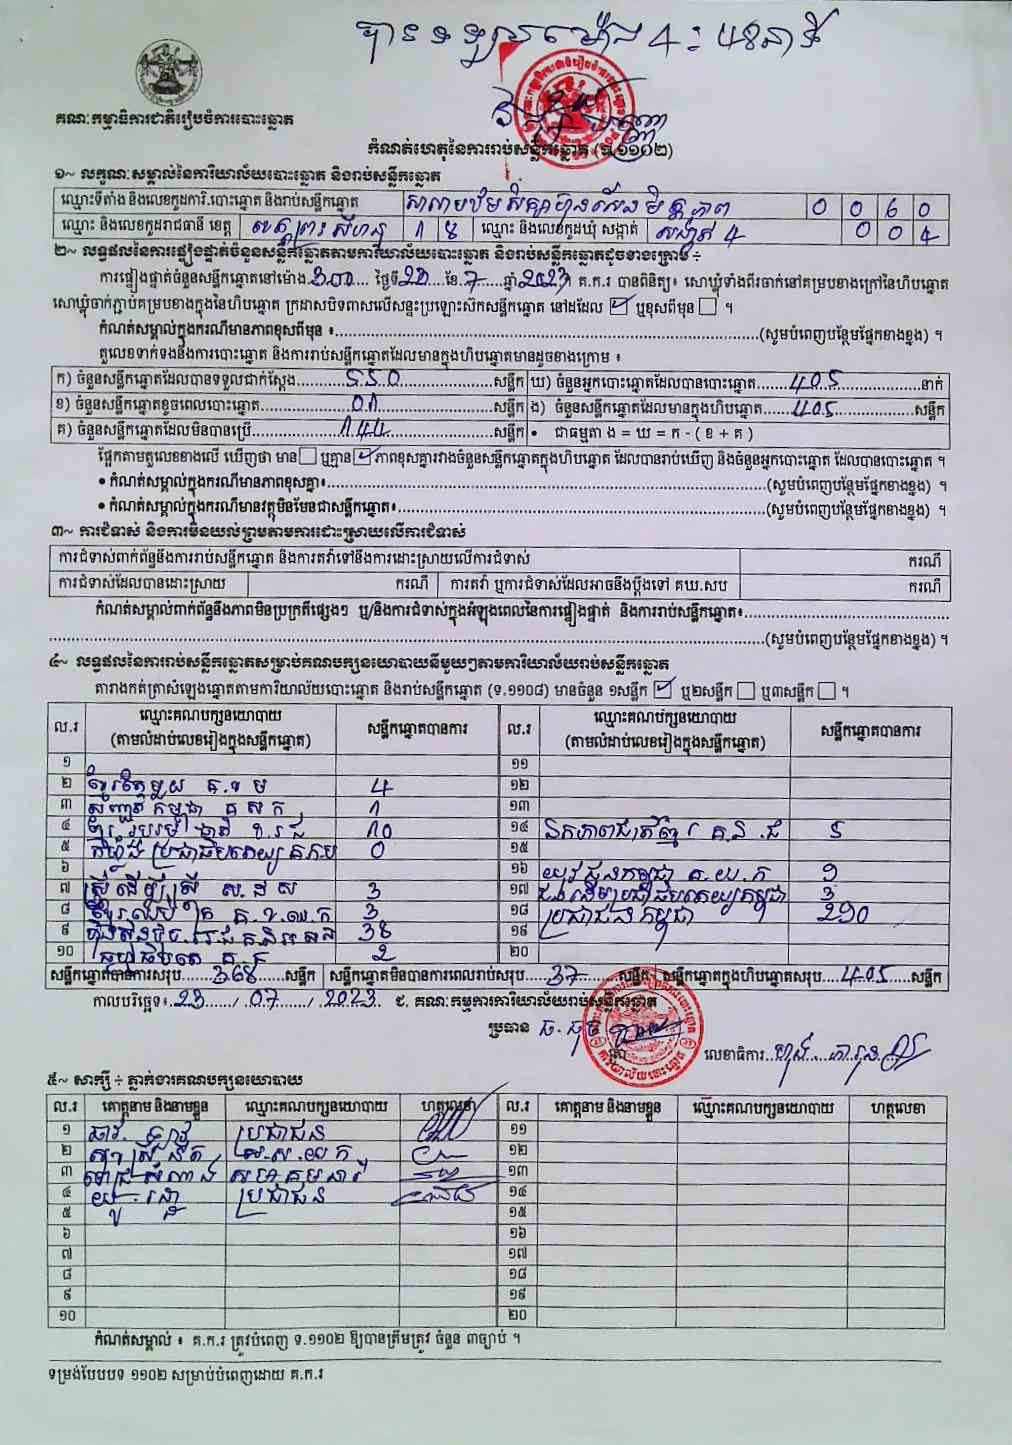 បានទទួលម៉ោង 4:48នាទី
គណៈកម្មាធិការជាតិរៀបចំការបោះឆ្នោត
កំណត់ហេតុនៃការរាប់សន្លឹកឆ្នោត (ទ.១១០២)
១~ លក្ខណៈសម្គាល់នៃការិយាល័យបោះឆ្នោត និងរាប់សន្លឹកឆ្នោត
ឈ្មោះទីតាំង និងលេខកូដការិ.បោះឆ្នោត និងរាប់សន្លឹកឆ្នោត សាលាបឋមសិក្សាហ៊ុនសែនមិត្តភាព 0 0 6 0
ឈ្មោះ និងលេខកូដរាជធានី ខេត្ត ខេត្តព្រះសីហនុ ១ ៨ ឈ្មោះ និងលេខកូដឃុំ សង្កាត់ សង្កាត់ 4 0 0 4
២~ លទ្ធផលនៃការផ្ទៀងផ្ទាត់ចំនួនសន្លឹកឆ្នោតតាមការិយាល័យបោះឆ្នោត និងរាប់សន្លឹកឆ្នោតដូចខាងក្រោម ÷
ការផ្ទៀងផ្ទាត់ចំនួនសន្លឹកឆ្នោតនៅម៉ោង 3:00 ថ្ងៃទី 23 ខែ 7 ឆ្នាំ 2023 គ.ក.រ បានពិនិត្យ៖ សោឃ្លុំទាំងពីរចាក់នៅគម្របខាងក្រៅនៃហិបឆ្នោត
សោឃ្លុំចាក់ភ្ជាប់គម្របខាងក្នុងនៃហិបឆ្នោត ក្រដាសបិទពាសលើសន្ទះប្រឡោះស៊ីកសន្លឹកឆ្នោត នៅដដែល ☑ ឬខុសពីមុន ☐ ។
កំណត់សម្គាល់ក្នុងករណីមានភាពខុសពីមុន ៖ (សូមបំពេញបន្ថែមផ្នែកខាងខ្នង) ។
តួលេខទាក់ទងនឹងការបោះឆ្នោត និងការរាប់សន្លឹកឆ្នោតដែលមានក្នុងហិបឆ្នោតមានដូចខាងក្រោម ៖
ក) ចំនួនសន្លឹកឆ្នោតដែលបានទទួលជាក់ស្តែង 550 សន្លឹក ឃ) ចំនួនអ្នកបោះឆ្នោតដែលបានបោះឆ្នោត 405 នាក់
ខ) ចំនួនសន្លឹកឆ្នោតខូចពេលបោះឆ្នោត 0១ សន្លឹក ង) ចំនួនសន្លឹកឆ្នោតដែលមានក្នុងហិបឆ្នោត 405 សន្លឹក
គ) ចំនួនសន្លឹកឆ្នោតដែលមិនបានប្រើ ១44 សន្លឹក • ជាធម្មតា ង = ឃ = ក - ( ខ + គ )
ផ្អែកតាមតួលេខខាងលើ ឃើញថា មាន ☐ ឬគ្មាន ☑ ភាពខុសគ្នារវាងចំនួនសន្លឹកឆ្នោតក្នុងហិបឆ្នោត ដែលបានរាប់ឃើញ និងចំនួនអ្នកបោះឆ្នោត ដែលបានបោះឆ្នោត ។
• កំណត់សម្គាល់ក្នុងករណីមានភាពខុសគ្នា៖ (សូមបំពេញបន្ថែមផ្នែកខាងខ្នង) ។
• កំណត់សម្គាល់ក្នុងករណីមានវត្ថុមិនមែនជាសន្លឹកឆ្នោត៖ (សូមបំពេញបន្ថែមផ្នែកខាងខ្នង) ។
៣~ ការជំទាស់ និងការមិនយល់ព្រមតាមការដោះស្រាយលើការជំទាស់
ការជំទាស់ពាក់ព័ន្ធនឹងការរាប់សន្លឹកឆ្នោត និងការតវ៉ាទៅនឹងការដោះស្រាយលើការជំទាស់ ករណី
ការជំទាស់ដែលបានដោះស្រាយ ករណី ការតវ៉ា ឬការជំទាស់ដែលអាចនឹងប្តឹងទៅ គឃ.សប ករណី
កំណត់សម្គាល់ពាក់ព័ន្ធនឹងភាពមិនប្រក្រតីផ្សេងៗ ឬ/និងការជំទាស់ក្នុងអំឡុងពេលនៃការផ្ទៀងផ្ទាត់ និងការរាប់សន្លឹកឆ្នោត៖
(សូមបំពេញបន្ថែមផ្នែកខាងខ្នង) ។
៤~ លទ្ធផលនៃការរាប់សន្លឹកឆ្នោតសម្រាប់គណបក្សនយោបាយនីមួយៗតាមការិយាល័យរាប់សន្លឹកឆ្នោត
តារាងកត់ត្រាសំឡេងឆ្នោតតាមការិយាល័យបោះឆ្នោត និងរាប់សន្លឹកឆ្នោត (ទ.១១០៨) មានចំនួន ១សន្លឹក ☑ ឬ២សន្លឹក ☐ ឬ៣សន្លឹក ☐ ។
ល.រ ឈ្មោះគណបក្សនយោបាយ សន្លឹកឆ្នោតបានការ ល.រ ឈ្មោះគណបក្សនយោបាយ សន្លឹកឆ្នោតបានការ
(តាមលំដាប់លេខរៀងក្នុងសន្លឹកឆ្នោត) (តាមលំដាប់លេខរៀងក្នុងសន្លឹកឆ្នោត)
១ ១១
២ ខ្មែរតែមួយ គ.ខ ម 4 ១២
៣ កម្ពុជា ១ ១៣
៤ ១0 ១៤ ឯកភាពជាតិខ្មែរ គ.ន.ជ 5
៥ ប្រជាធិបតេយ្យ គ.ក.ប 0 ១៥
៦ ១៦ យុវជនកម្ពុជា គ.យ.ក 9
៧ ស្ត្រីដើម្បីស្ត្រី ស.ដ ស 3 ១៧ ប្រជាធិបតេយ្យកម្ពុជា 3
៨ 3 ១៨ ប្រជាជនកម្ពុជា 290
៩ ហ៊្វុនស៊ិនប៉ិច 38 ១៩
១០ 2 ២០
សន្លឹកឆ្នោតបានការសរុប 368 សន្លឹក សន្លឹកឆ្នោតមិនបានការពេលរាប់សរុប 37 សន្លឹក សន្លឹកឆ្នោតក្នុងហិបឆ្នោតសរុប 405 សន្លឹក
កាលបរិច្ឆេទ៖ 23 / 07 / 2023 ជ. គណៈកម្មការការិយាល័យរាប់សន្លឹកឆ្នោត
ប្រធាន
លេខាធិការ
៥~ សាក្សី ÷ ភ្នាក់ងារគណបក្សនយោបាយ
ល.រ គោត្តនាម និងនាមខ្លួន ឈ្មោះគណបក្សនយោបាយ ហត្ថលេខា ល.រ គោត្តនាម និងនាមខ្លួន ឈ្មោះគណបក្សនយោបាយ ហត្ថលេខា
១ ប្រជាជន ១១
២ ១២
៣ ១៣
៤ ប្រជាជន ១៤
៥ ១៥
៦ ១៦
៧ ១៧
៨ ១៨
៩ ១៩
១០ ២០
កំណត់សម្គាល់ ៖ គ.ក.រ ត្រូវបំពេញ ទ.១១០២ ឱ្យបានត្រឹមត្រូវ ចំនួន ៣ច្បាប់ ។
ទម្រង់បែបបទ ១១០២ សម្រាប់បំពេញដោយ គ.ក.រ